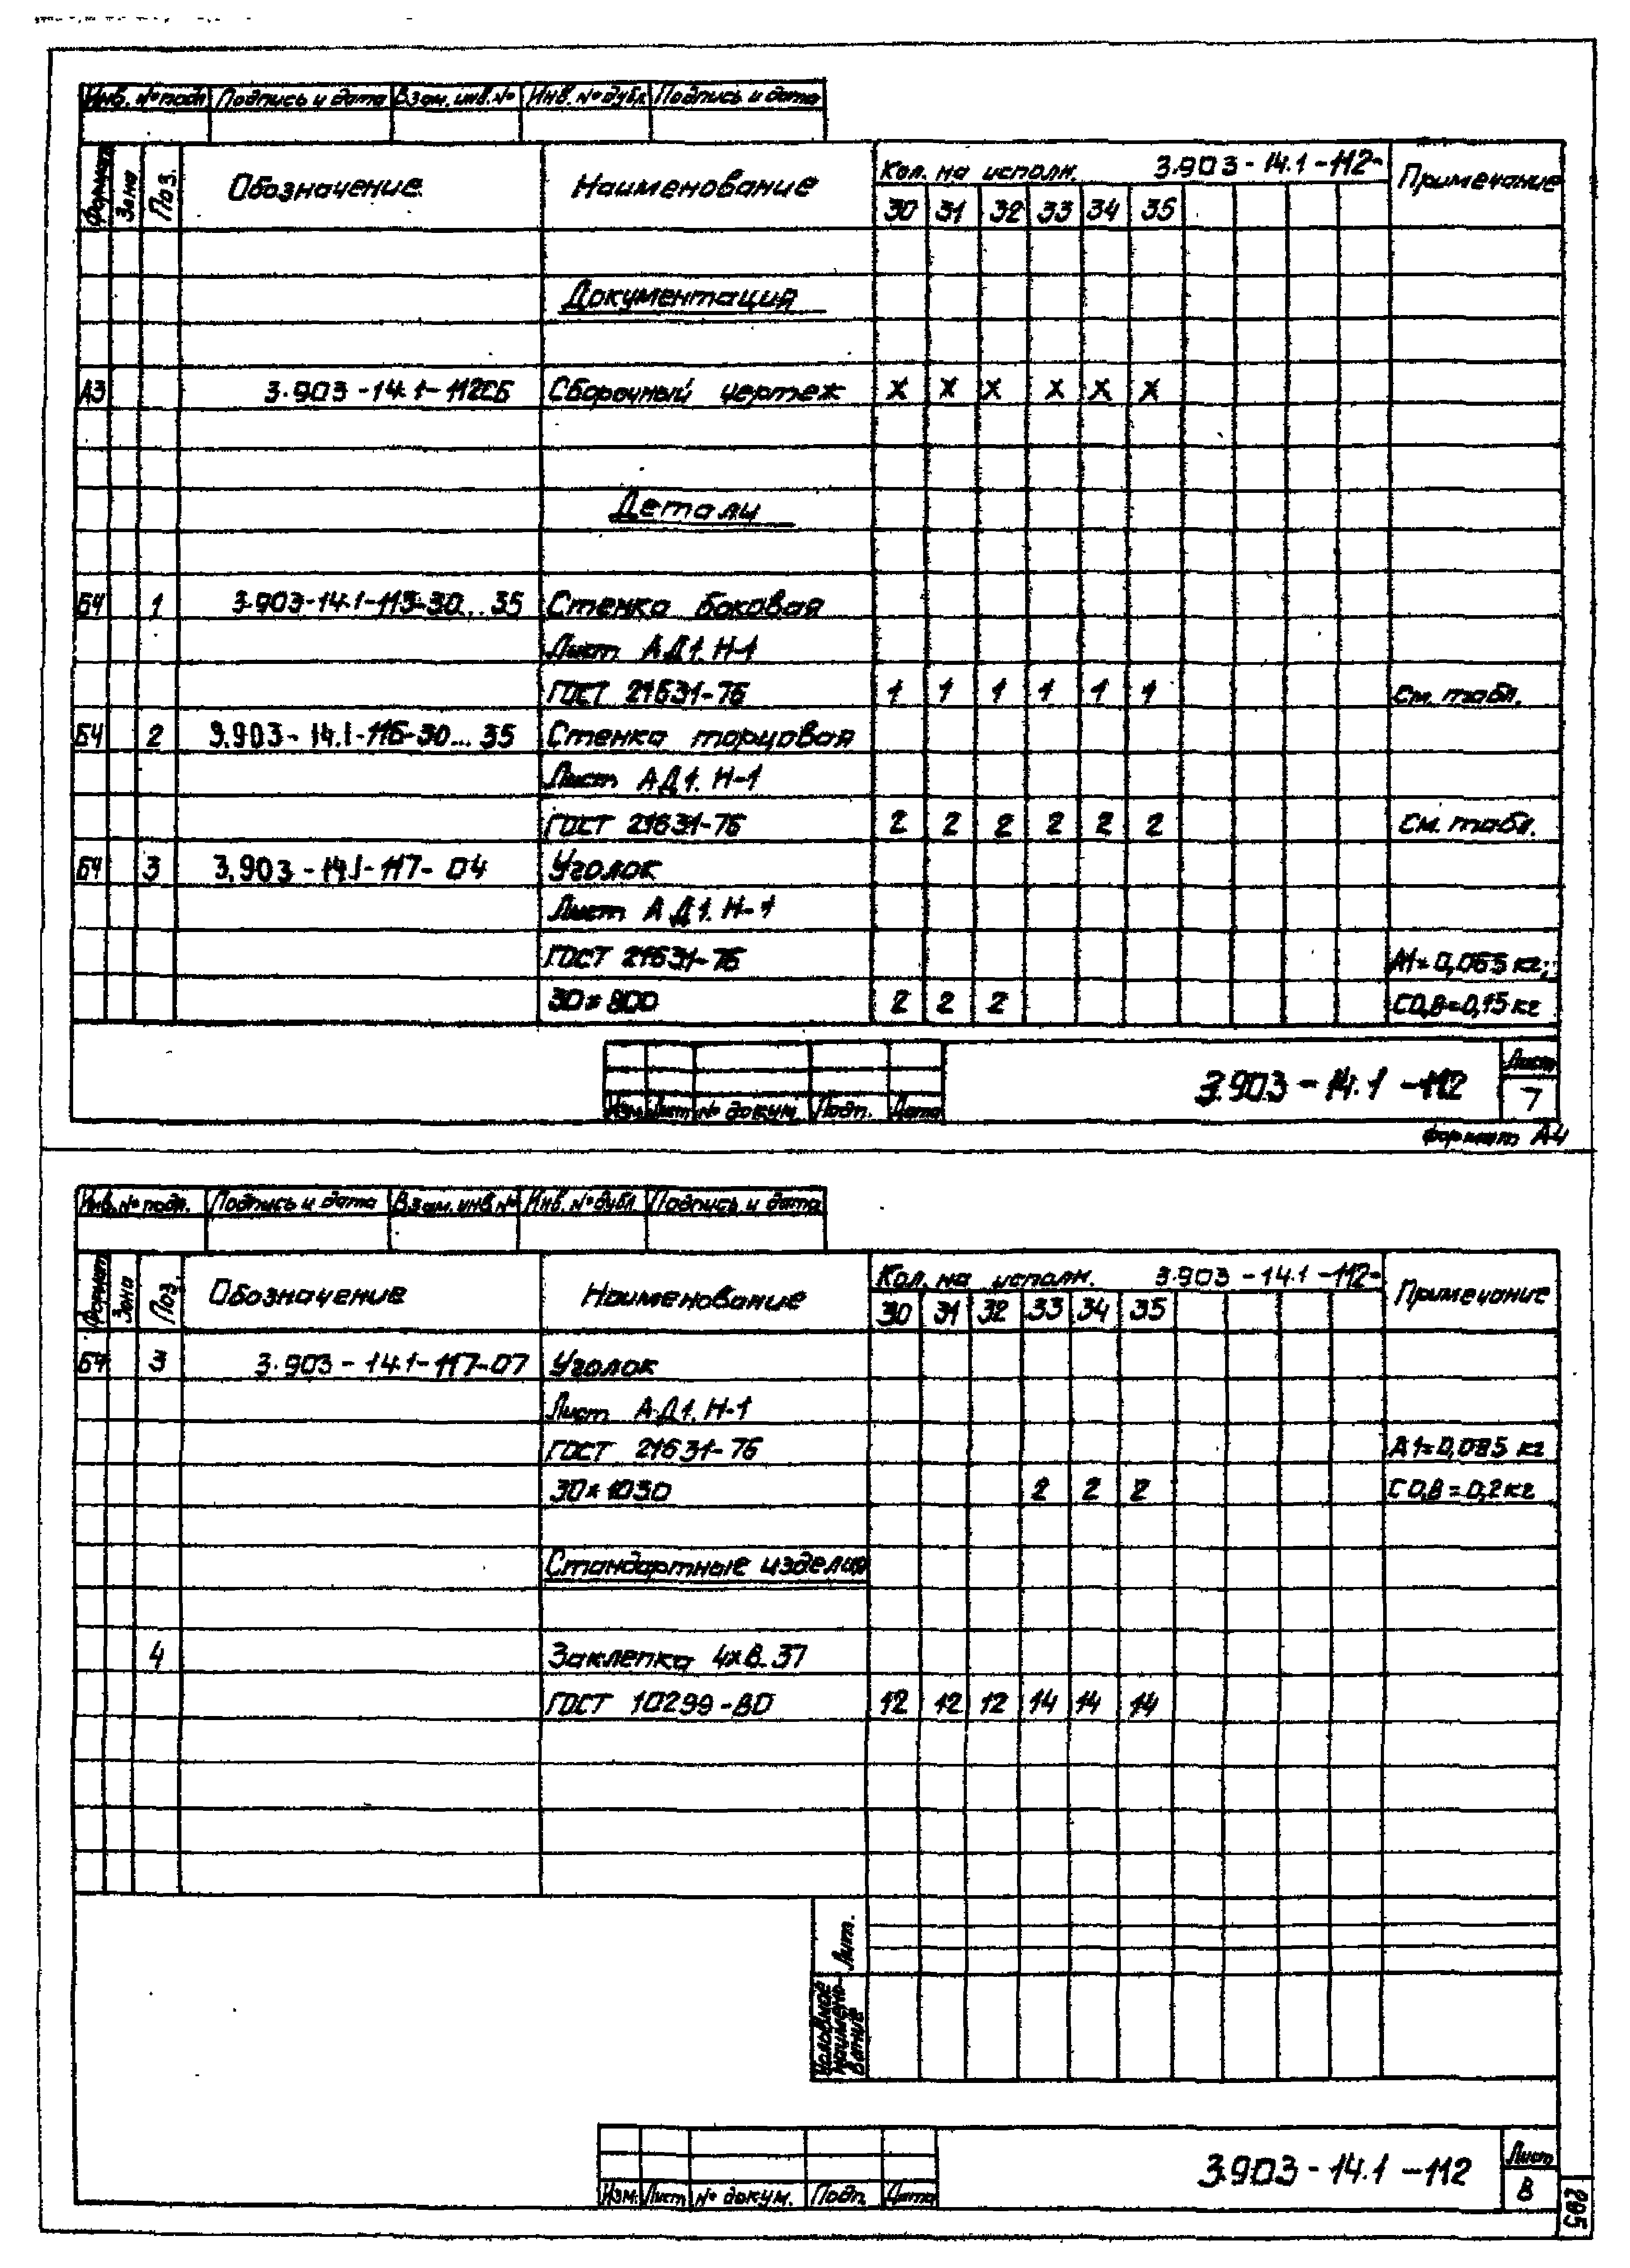 Инв. № подл Подпись и дата Взам. инв. № Инв. № дубл Подпись и дата
Формат Зона Поз. Обозначение Наименование Кол. на исполн. 3.903-14.1-112- Примечание
30 31 32 33 34 35
Документация
А3 3.903-14.1-112СБ Сборочный чертеж х х х х х х
Детали
БЧ 1 3.903-14.1-113-30...35 Стенка боковая
Лист АД1.Н-1
ГОСТ 21631-76 1 1 1 1 1 1 См. табл.
БЧ 2 3.903-14.1-116-30...35 Стенка торцовая
Лист АД1.Н-1
ГОСТ 21631-76 2 2 2 2 2 2 См. табл.
БЧ 3 3.903-14.1-117-04 Уголок
Лист АД1.Н-1
ГОСТ 21631-76 А1=0,065 кг;
30×800 2 2 2 С0,8=0,15 кг
Изм. Лист № докум. Подп. Дата 3.903-14.1-112 Лист 7
формат А4
Инв. № подл. Подпись и дата Взам. инв № Инв. № дубл. Подпись и дата
Формат Зона Поз. Обозначение Наименование Кол. на исполн. 3.903-14.1-112- Примечание
30 31 32 33 34 35
БЧ 3 3.903-14.1-117-07 Уголок
Лист АД1.Н-1
ГОСТ 21631-76 А1=0,085 кг
30×1030 2 2 2 С0,8=0,2 кг
Стандартные изделия
4 Заклепка 4х8.37
ГОСТ 10299-80 12 12 12 14 14 14
Лит.
Условное наимено-вание
Изм. Лист № докум. Подп. Дата 3.903-14.1-112 Лист 8